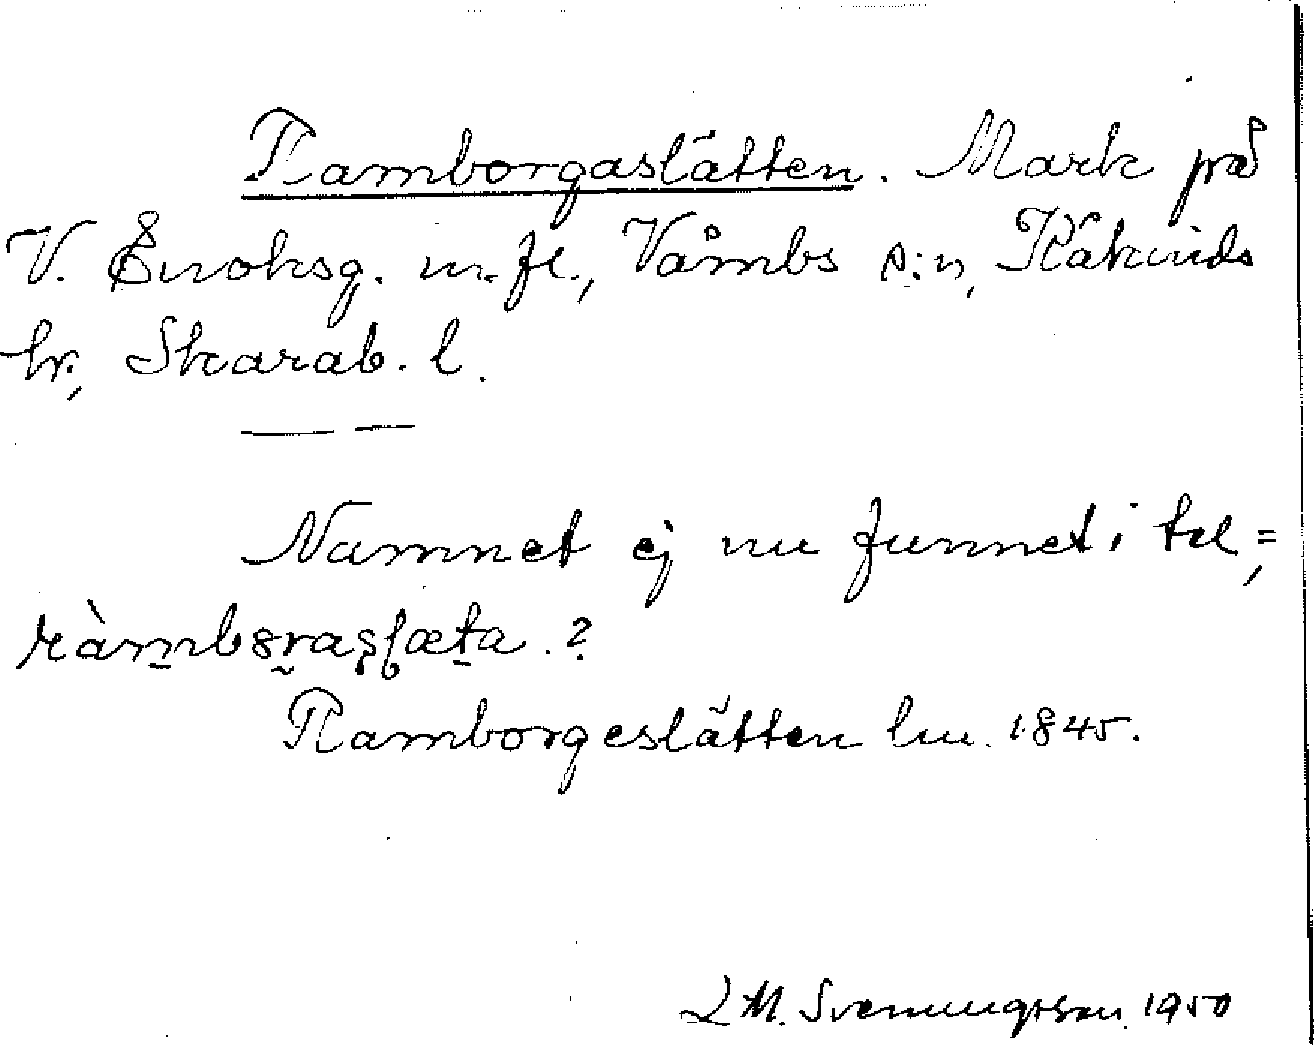 Ramborgaslätten. Mark på
V. Enoksg. m. fl., Våmbs s:n, Kåkinds
hr, Skarab. l.
Namnet ej nu funnet i tal,=
ràmbɜrasl̥æta. ?
Ramborgeslätten lm. 1845.
L M. Svenungsson 1950